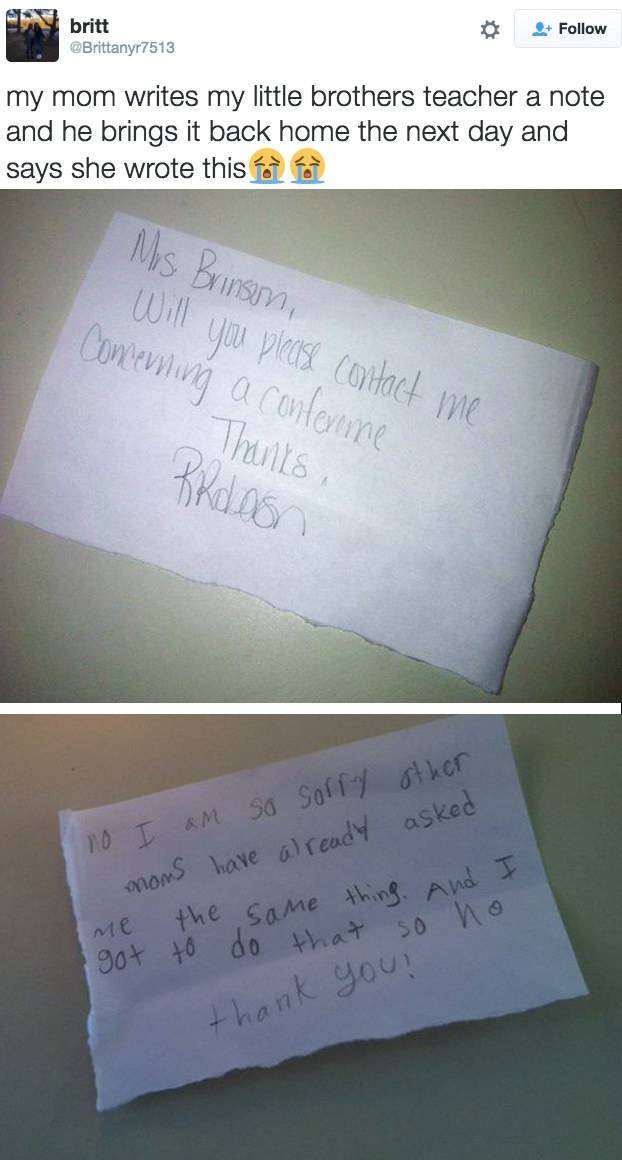 britt
@Brittanyr7513
Follow
my mom writes my little brothers teacher a note
and he brings it back home the next day and
says she wrote this😭😭
Mrs. Brinson,
Will you please contact me
Concerning a conference
Thanks,
no I am so sorry other
moms have already asked
me the same thing. And I
got to do that so no
thank you!